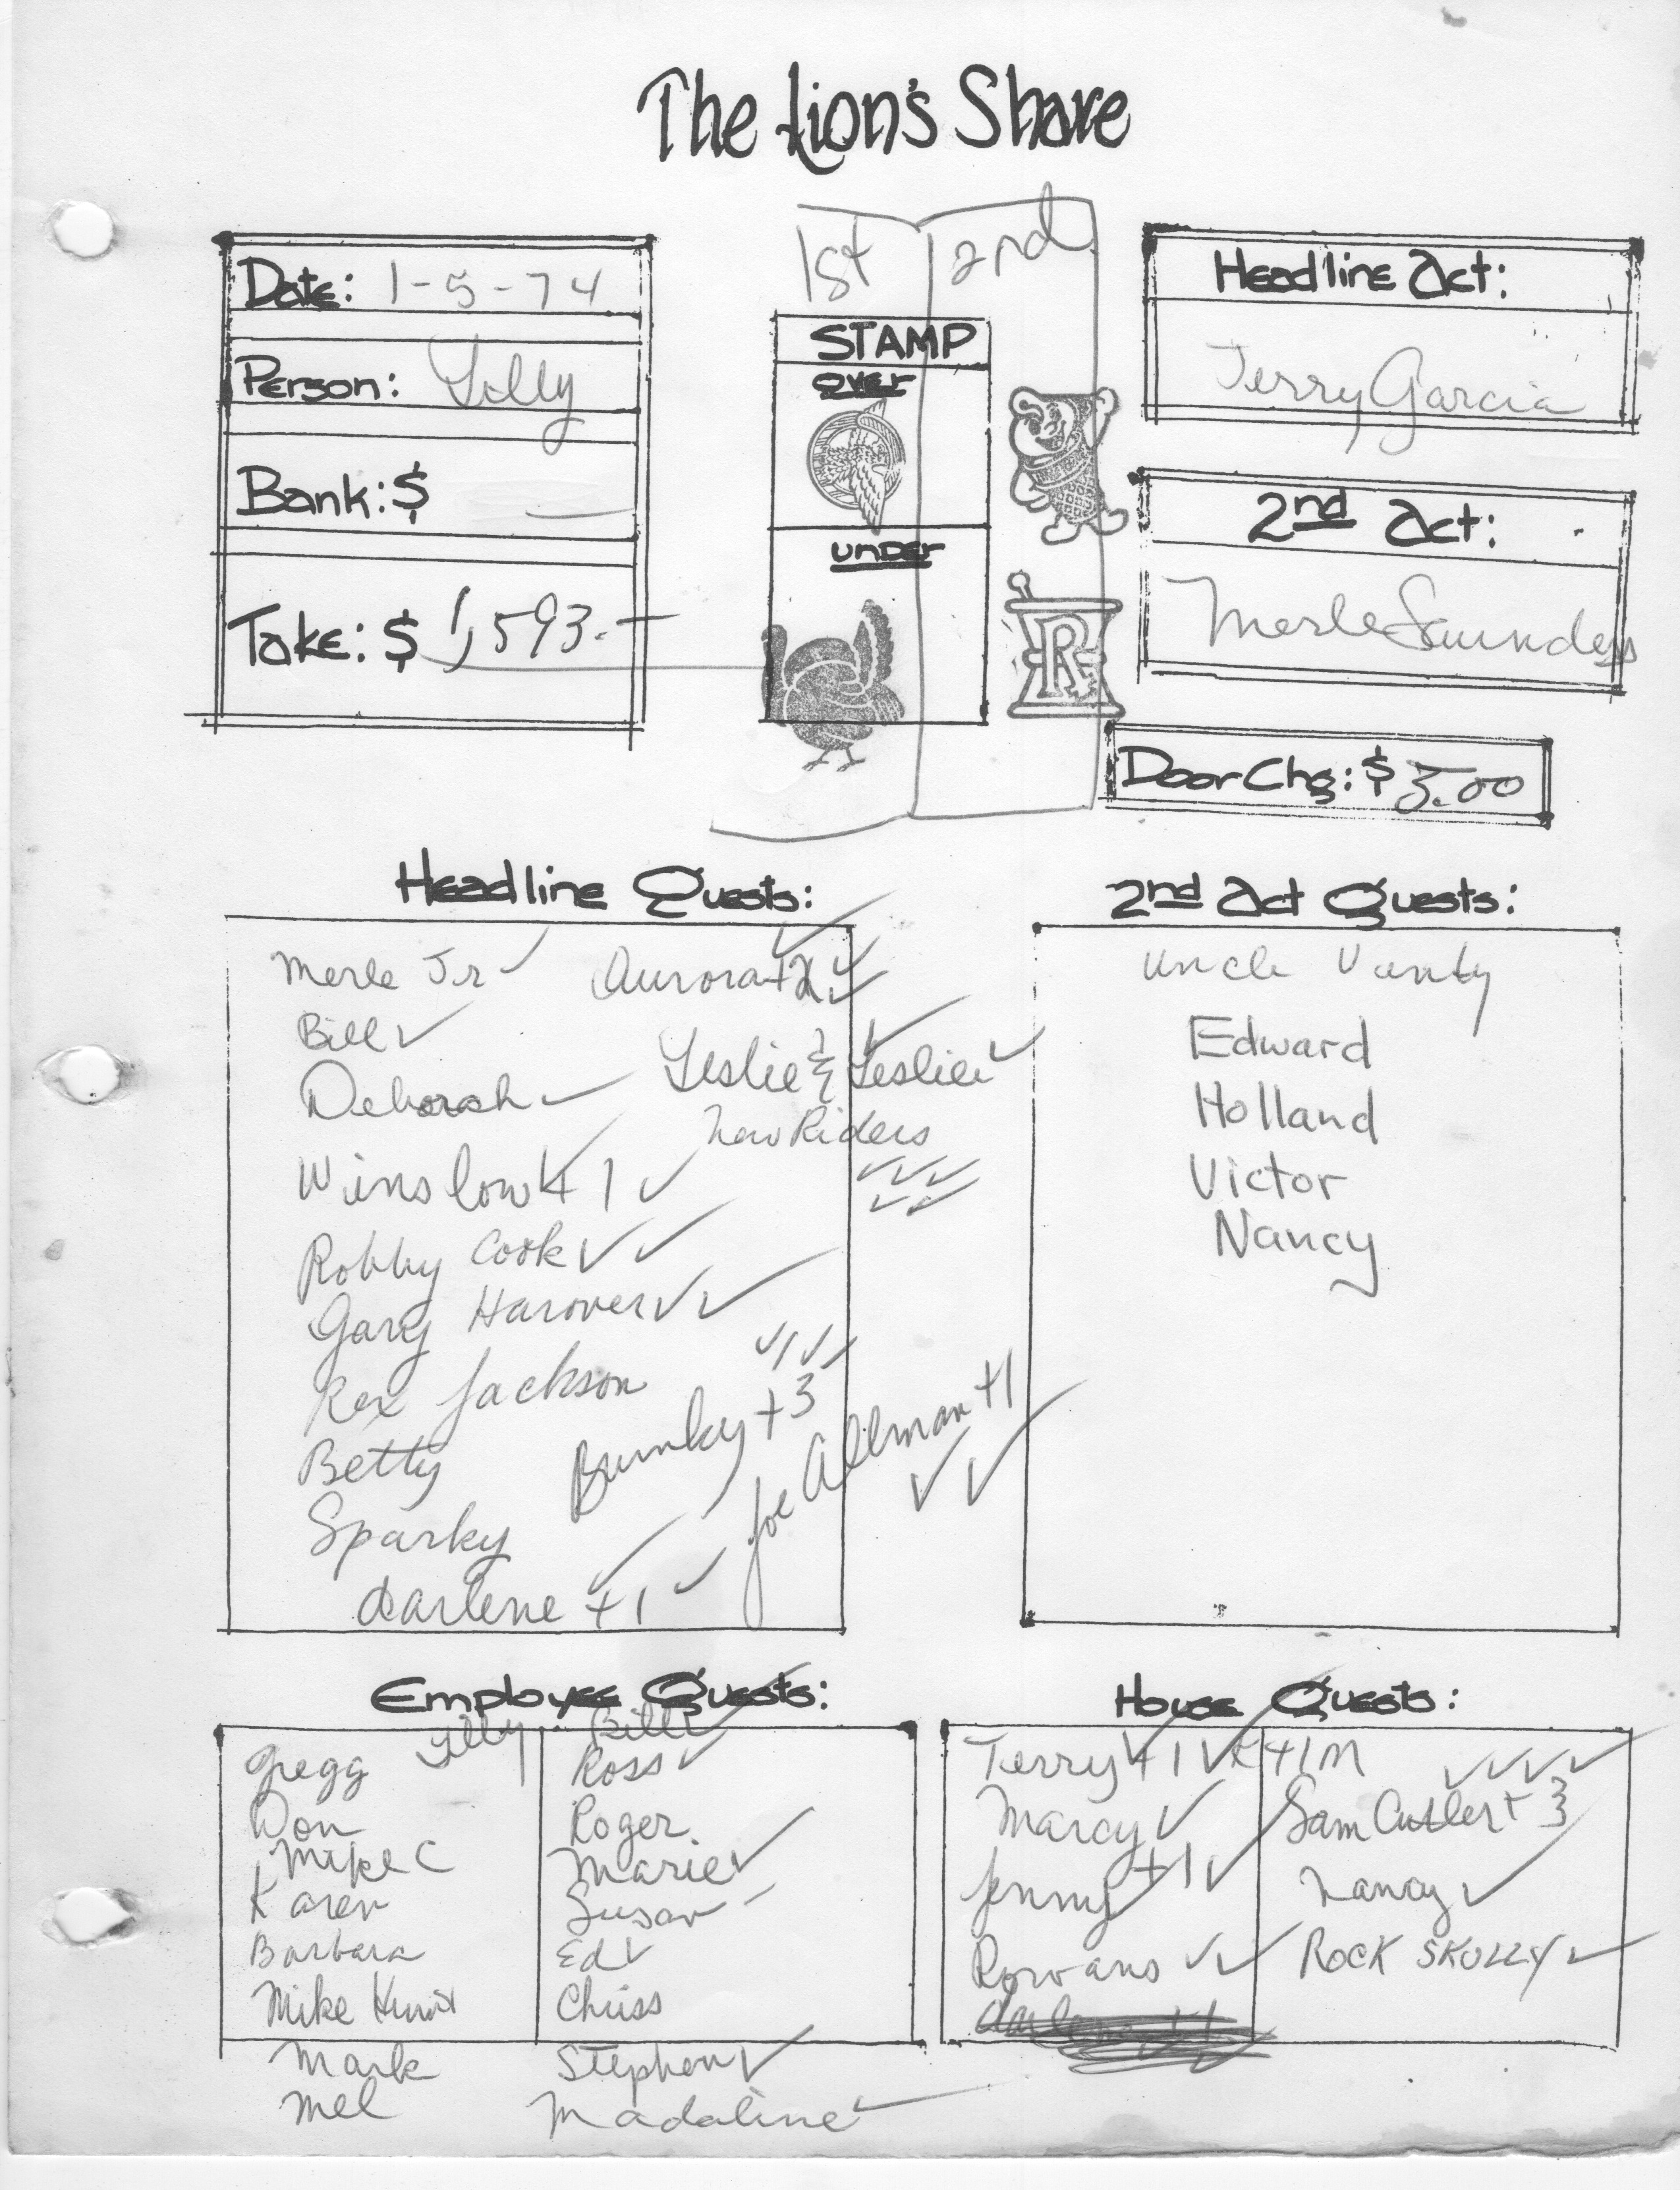 The Lion's Share
1st 2nd
Date: 1-5-74
Person: Lilly
Bank: $ —
Take: $ 1,593.—
STAMP
OVER
UNDER
R
Headline Act:
Jerry Garcia
2nd Act:
Merle Saunders
Door Chg: $ 3.00
Headline Guests:
Merle Jr ✓ Aurora +2 ✓✓✓
Bill ✓
Deborah ✓ Leslie & Leslie ✓✓
New Riders
Winslow + 1 ✓✓ ✓✓✓✓✓
Robby Cook ✓✓
Gary Harover ✓✓
Rex Jackson
Betty Bunky + 3 ✓✓✓
Sparky Joe Allman +1 ✓✓
Darlene + 1 ✓✓
2nd Act Guests:
Uncle Vanty
Edward
Holland
Victor
Nancy
Employee Guests:
Lilly Bill ✓
Gregg Ross ✓
Don Roger
Mike C Marie ✓
Karen Susan ✓
Barbara Ed ✓
Mike Hunt Chriss
Mark Stephen ✓
Mel Madaline ✓
House Guests:
Terry + 1 ✓✓ + 1 M ✓✓✓✓
Marcy ✓ Sam Cutler + 3
Jenny + 1 ✓✓ Nancy ✓
Rowans ✓✓ ROCK SKULLY ✓